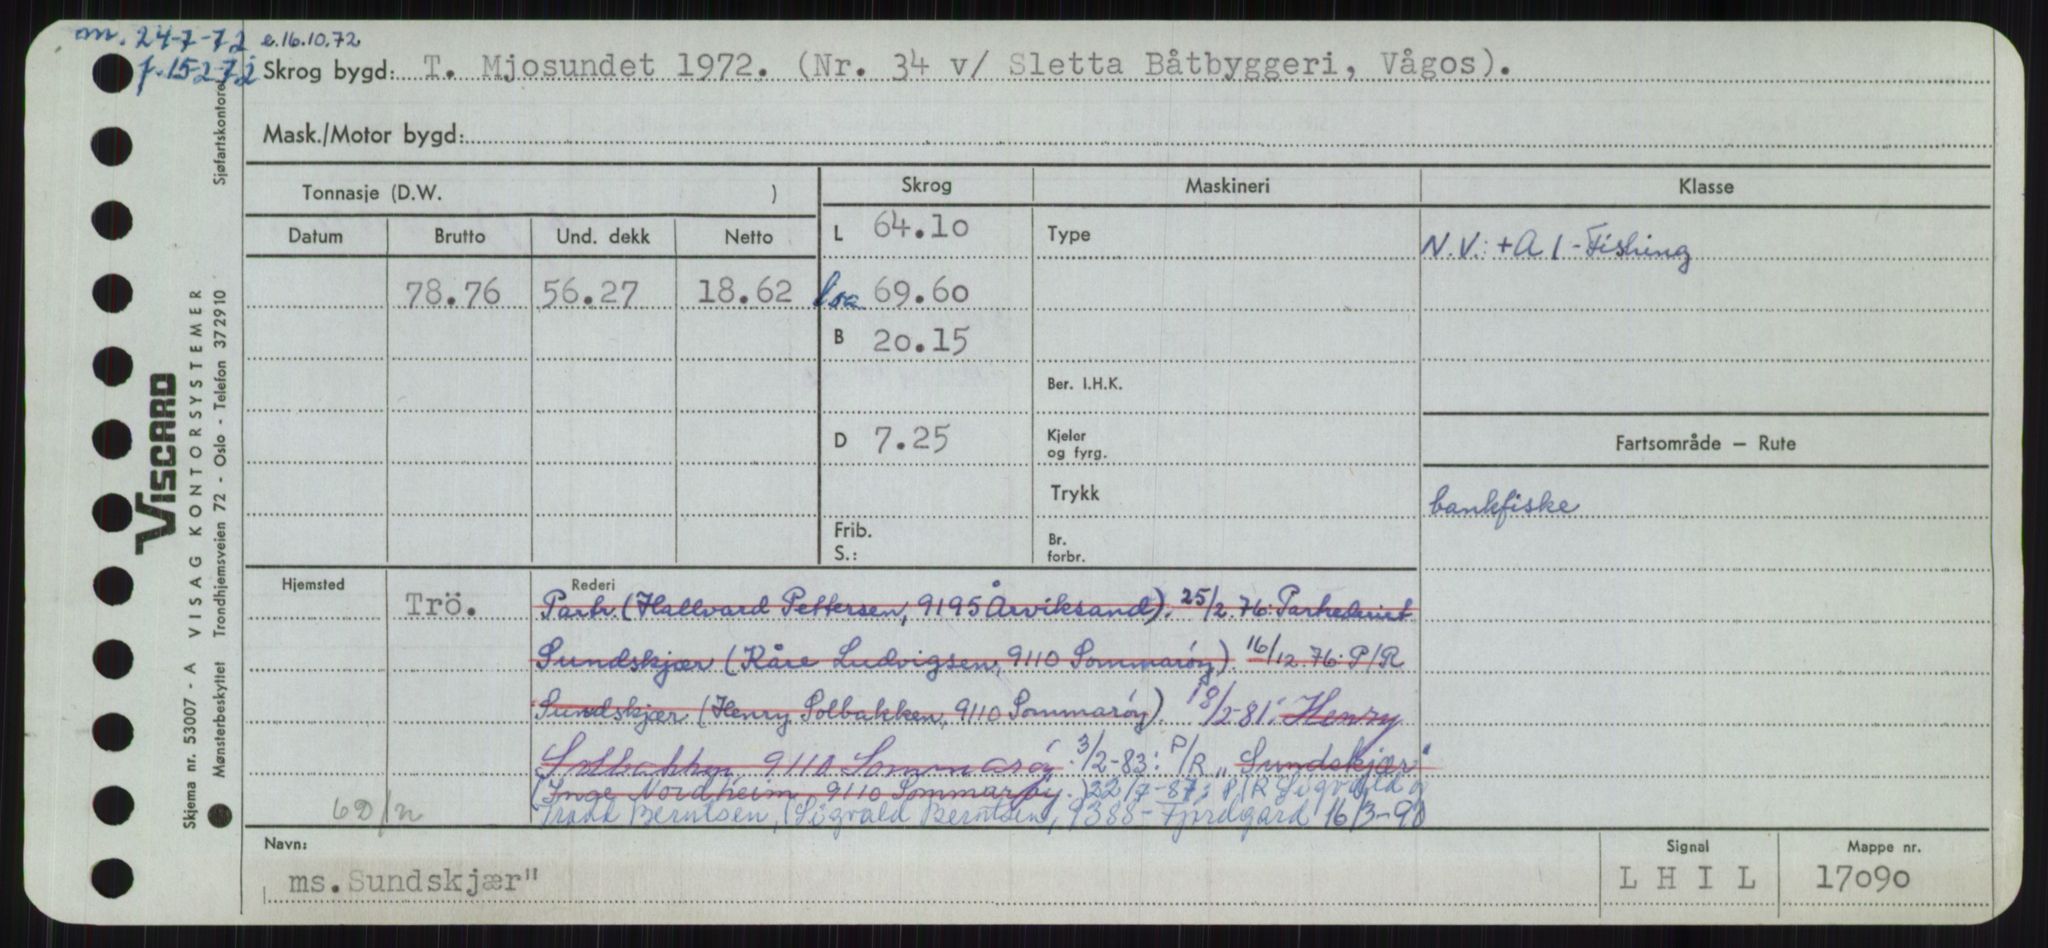 m. 24-7-72 e.16.10.72
f. 15-2-72
Skrog bygd: T. Mjosundet 1972. (Nr. 34 v/ Sletta Båtbyggeri, Vågos).
Mask./Motor bygd:
Tonnasje (D.W. )
Datum Brutto Und. dekk Netto
78.76 56.27 18.62
Skrog Maskineri Klasse
L 64.10 Type N.V.: +A 1 - Fishing
loa 69.60
B 20.15
Ber. I.H.K.
D 7.25 Kjeler
og fyrg.
Fartsområde – Rute
Trykk
bankfiske
Frib.
S.:
Br.
forbr.
Hjemsted Trö. Rederi
Partr. (Hallvard Pettersen, 9195 Årviksand). 25/2.76: Partrederiet
Sundskjær (Kåre Ludvigsen, 9110 Sommarøy). 16/12.76: P/R
Sundskjær (Henry Solbakken, 9110 Sommarøy). 18/2-81: Henry
Solbakken, 9110 Sommarøy. 3/2-83: P/R „Sundskjær"
(Inge Nordheim, 9110 Sommarøy.) 22/7-87; P/R Sigvald og
Berntsen, (Sigvald Berntsen, 9388 - Fjordgård 16/3-90
6D/n
Navn: ms. Sundskjær"
Signal L H I L
Mappe nr. 17090
VISCARD
Skjema nr. 53007 - A VISAG KONTORSYSTEMER
Mønsterbeskyttet Trondhjemsveien 72 - Oslo - Telefon 372910 Sjøfartskontoret